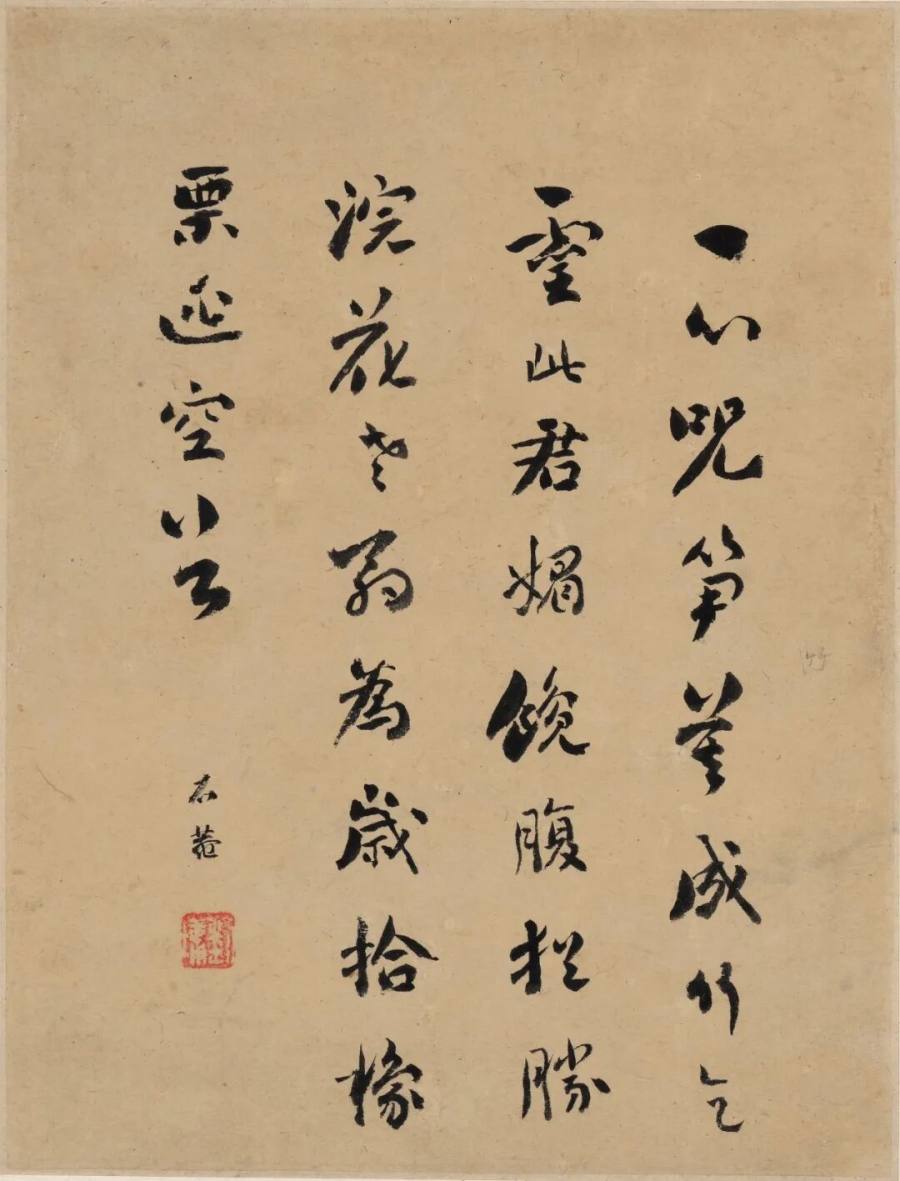 一心咒筍莫成竹乞
靈此君媚饞腹拙勝
浣花老翁為歲拾橡
栗遶空谷
石菴